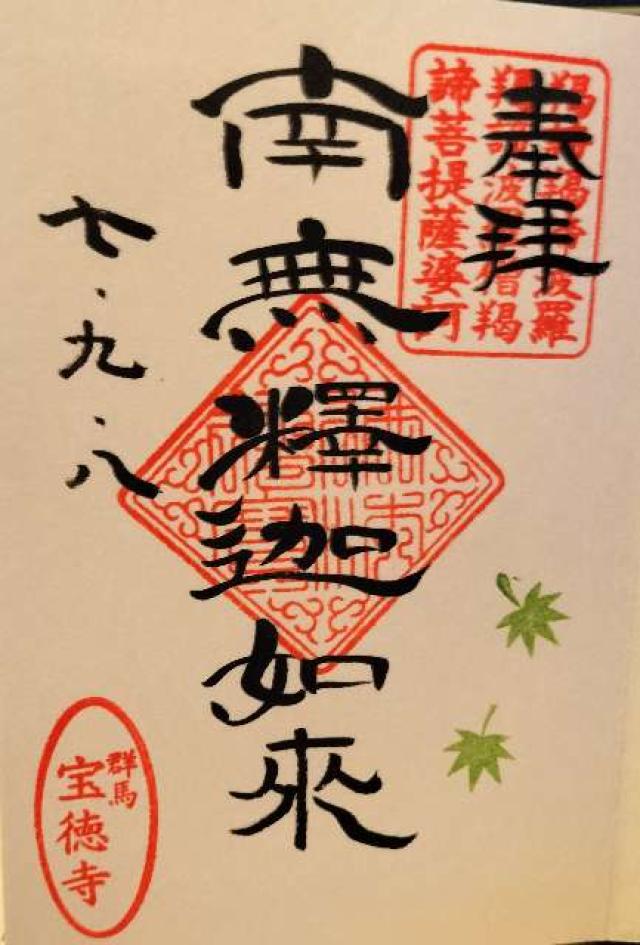 奉拝
羯諦羯諦波羅
羯諦波羅僧羯
諦菩提薩婆訶
南無釋迦如來
七・九・八
群馬
宝徳寺